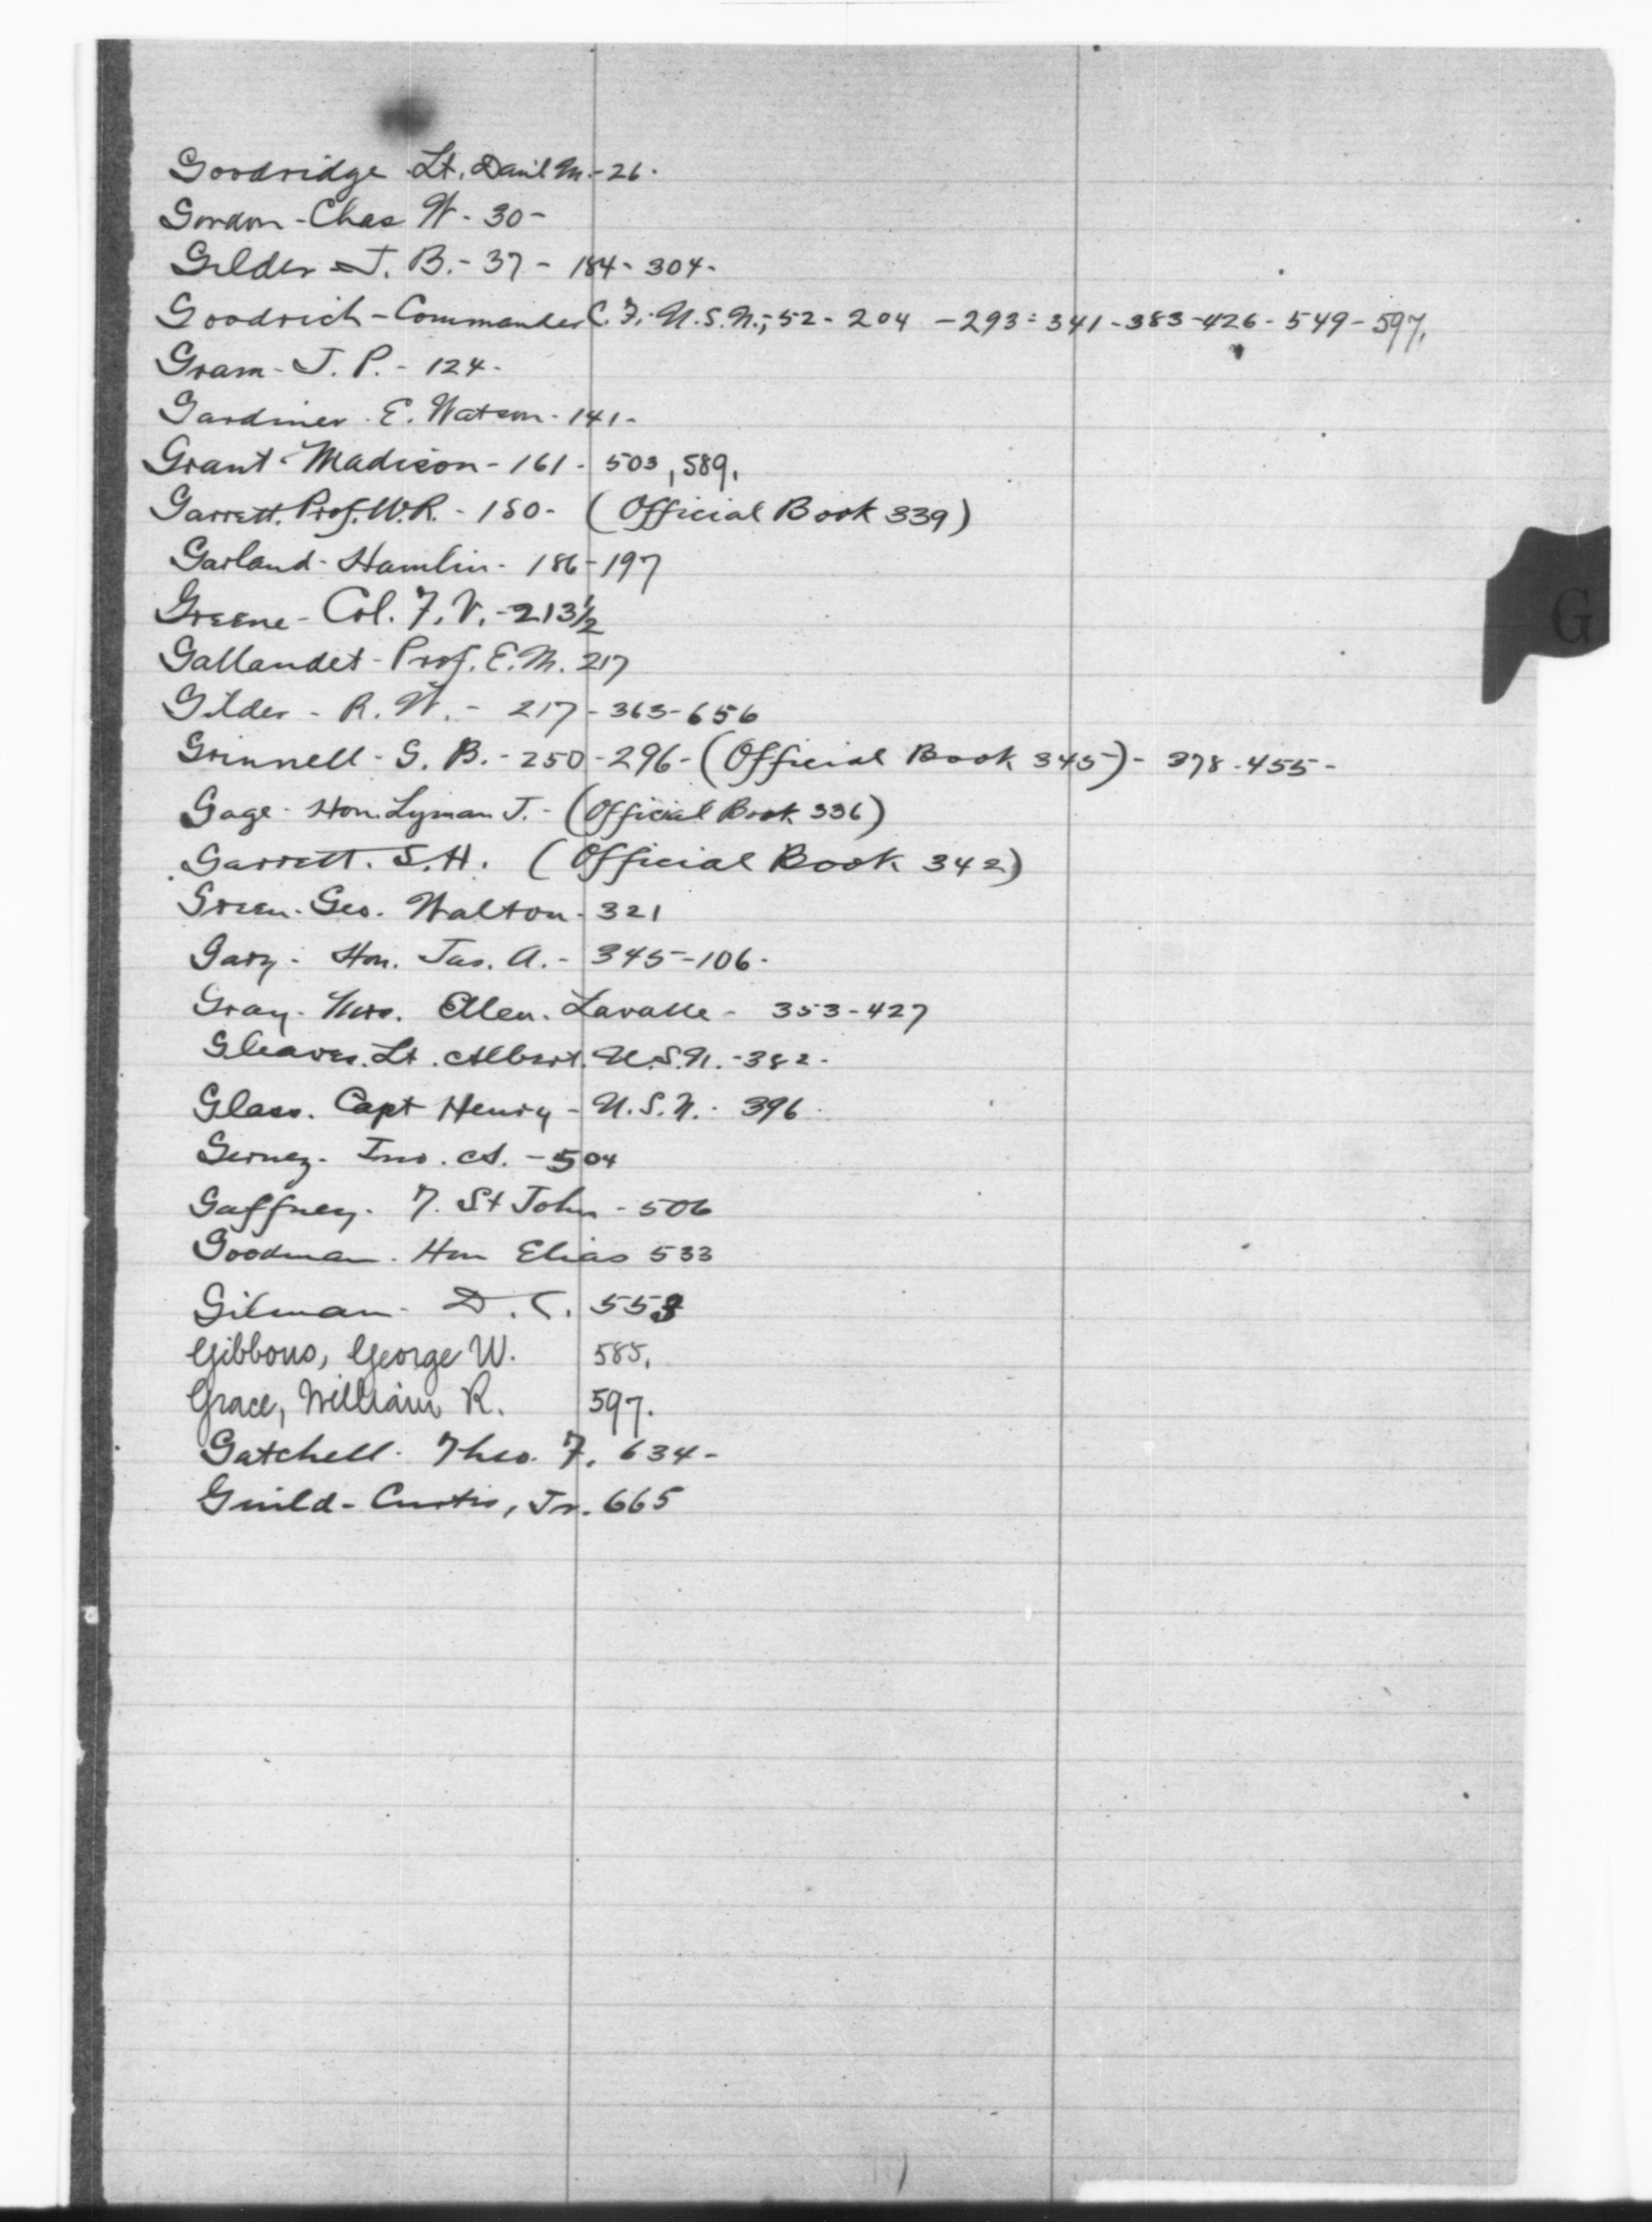 Goodridge Lt. Danl M. - 26.
Gordon - Chas W - 30 -
Gilder - J. B. - 37 - 184 - 304 -
Goodrich - Commander C. F. U.S.N.; 52 - 204 - 293 - 341 - 383 - 426 - 549 - 597.
Gram - J. P. - 124 -
Gardiner - E. Watson - 141 -
Grant - Madison - 161 - 503, 589.
Garrett. Prof. W.R. - 180 - (Official Book 339)
Garland - Hamlin - 186 - 197
G
Greene - Col. F. V. - 213½
Gallaudet - Prof. E. M. 217
Gilder - R. W. - 217 - 363 - 656
Grinnell - G. B. - 250 - 296 - (Official Book 345) - 378 - 455 -
Gage - Hon. Lyman J. - (Official Book 336)
Garrett. S.H. (Official Book 342)
Green - Geo. Walton - 321
Gary - Hon. Jas. A. - 345 - 106 -
Gray - Mrs. Ellen - Lavalle - 353 - 427
Gleaves. Lt. Albert. U.S.N. - 382 -
Glass. Capt Henry - U.S.N. - 396
Jno. A. - 504
Gaffney - T. St John - 506
Goodman - Hon Elias 533
Gilman - D. C. 553
Gibbons, George W. 585.
Grace, William R. 597.
Gatchell - Theo. F. 634 -
Guild - Curtis, Jr. 665